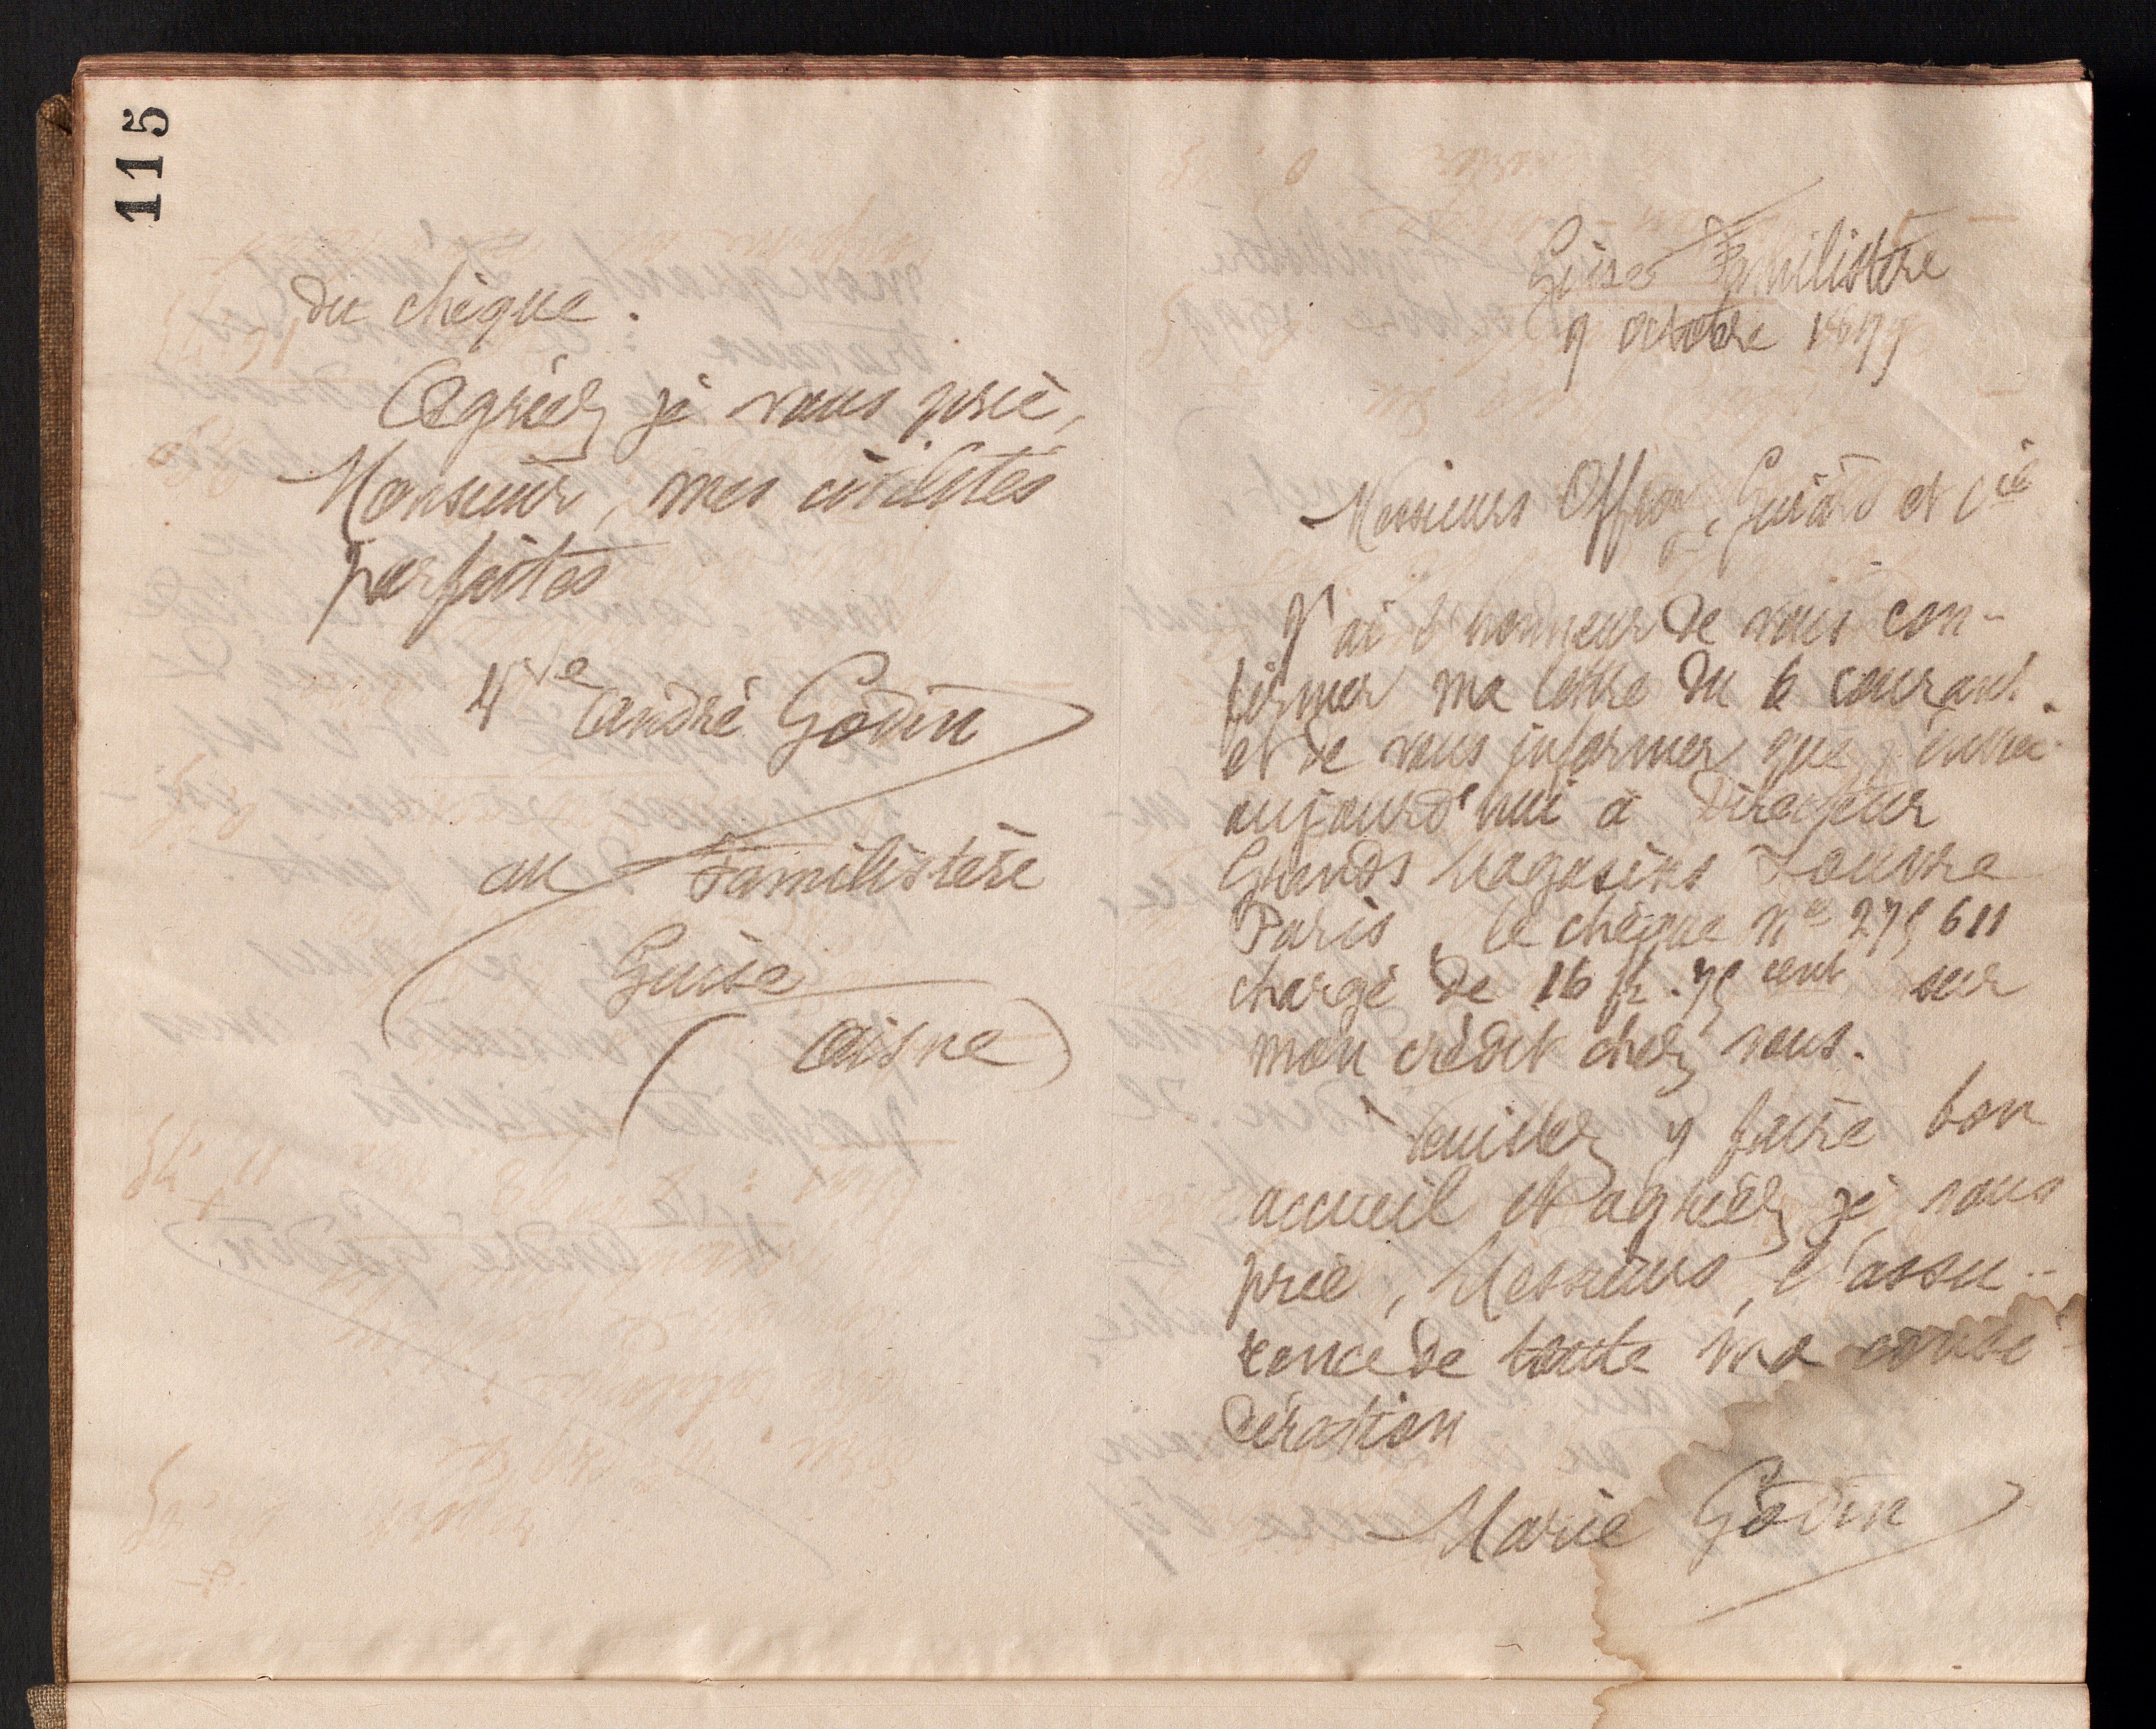 115
du chèque.
Agréez je vous prie,
Monsieur, mes civilités
parfaites
Vve André Godin
au Familistère
Guise
(Aisne)
Guise Familistère
9 octobre 1899
Messieurs Offroy, Guiard et Cie
J'ai l'honneur de vous con-
firmer ma lettre du 6 courant.
et de vous informer que j'envoie
aujourd'hui à Directeur
Grands Magasins Louvre
Paris, le chèque no 275611
chargé de 16 fr. 75 cent sur
mon crédit chez vous.
Veuillez y faire bon
accueil et agréez je vous
prie, Messieurs, l'assu-
rance de toute ma consi
dération
Marie Godin